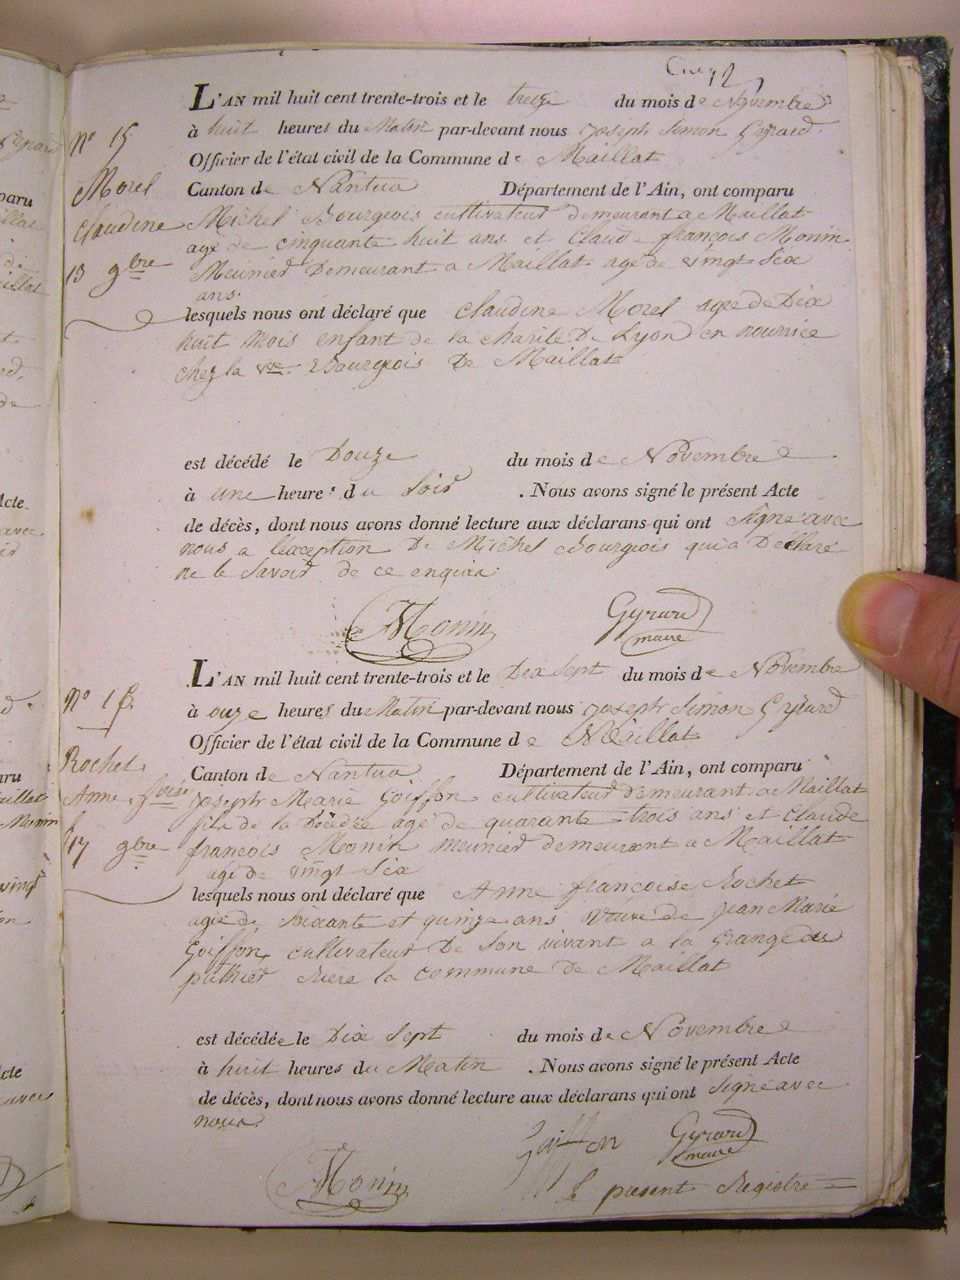 L'AN mil huit cent trente-trois et le treize du mois de Novembre
à huit heures du Matin par-devant nous Joseph Simon Gyrard
Officier de l'état civil de la Commune de Maillat
Canton de Nantua Département de l'Ain, ont comparu
N° 15
Morel
Claudine
13 9bre
Michel Bourgeois cultivateur demeurant a Maillat
agé de cinquante huit ans et Claude françois Monin
Meunier Demeurant a Maillat agé de vingt Six
ans.
lesquels nous ont déclaré que Claudine Morel agee de Dix
huit mois enfant de la charité De Lyon en nourrice
chez la vve Bourgeois De Maillat
est décédé le Douze du mois de Novembre
à une heure du Soir . Nous avons signé le présent Acte
de décès, dont nous avons donné lecture aux déclarans qui ont Signé avec
nous a lexception De Michel Bourgeois qui a Déclaré
ne le Savoir de ce enquis
Monin Gyrard
maire
L'AN mil huit cent trente-trois et le Dix Sept du mois de Novembre
à onze heures du Matin par-devant nous Joseph Simon Gyrard
Officier de l'état civil de la Commune de Maillat
Canton de Nantua Département de l'Ain, ont comparu
N° 16
Rochet
Anne foise
17 9bre
Joseph Marie Goiffon cultivateur Demeurant a Maillat
fils de la Décédée agé de quarante trois ans et Claude
françois Monin meunier demeurant a Maillat
agé de vingt Six
lesquels nous ont déclaré que Anne françoise Rochet
agée de Soixante et quinze ans veuve de Jean Marie
Goiffon cultivateur De Son vivant a la Grange du
riere la commune de Maillat
est décédée le Dix Sept du mois de Novembre
à huit heures du Matin . Nous avons signé le présent Acte
de décès, dont nous avons donné lecture aux déclarans qui ont Signé avec
nous
Goiffon Gyrard
maire
Monin
present Registre